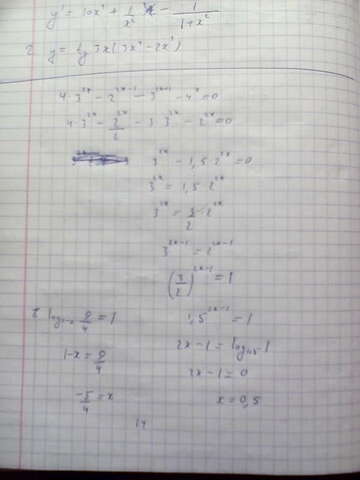 y' = 10x⁴ + 1/x² - 1/(1+x²)
2. y = lg 3x (3x⁴ - 2x³)
4·3^(2x) - 2^(2x-1) - 3^(2x+1) - 4^x = 0
4·3^(2x) - 2^(2x)/2 - 3·3^(2x) - 2^(2x) = 0
3^(2x) - 1,5·2^(2x) = 0
3^(2x) = 1,5·2^(2x)
3^(2x) = 3/2·2^(2x)
3^(2x-1) = 2^(2x-1)
(3/2)^(2x-1) = 1
1,5^(2x-1) = 1
2x-1 = log₁,₅1
2x-1 = 0
x = 0,5
2. log₁₋ₓ 9/4 = 1
1-x = 9/4
-5/4 = x